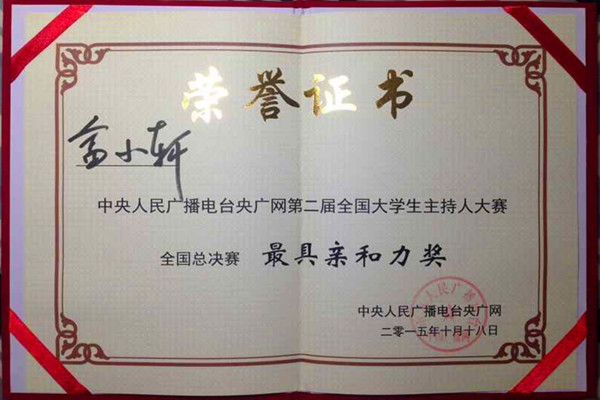 荣誉证书
小轩
中央人民广播电台央广网第二届全国大学生主持人大赛
全国总决赛 最具亲和力奖
人民广播
中央人民广播电台央广网
二零一五年十月十八日